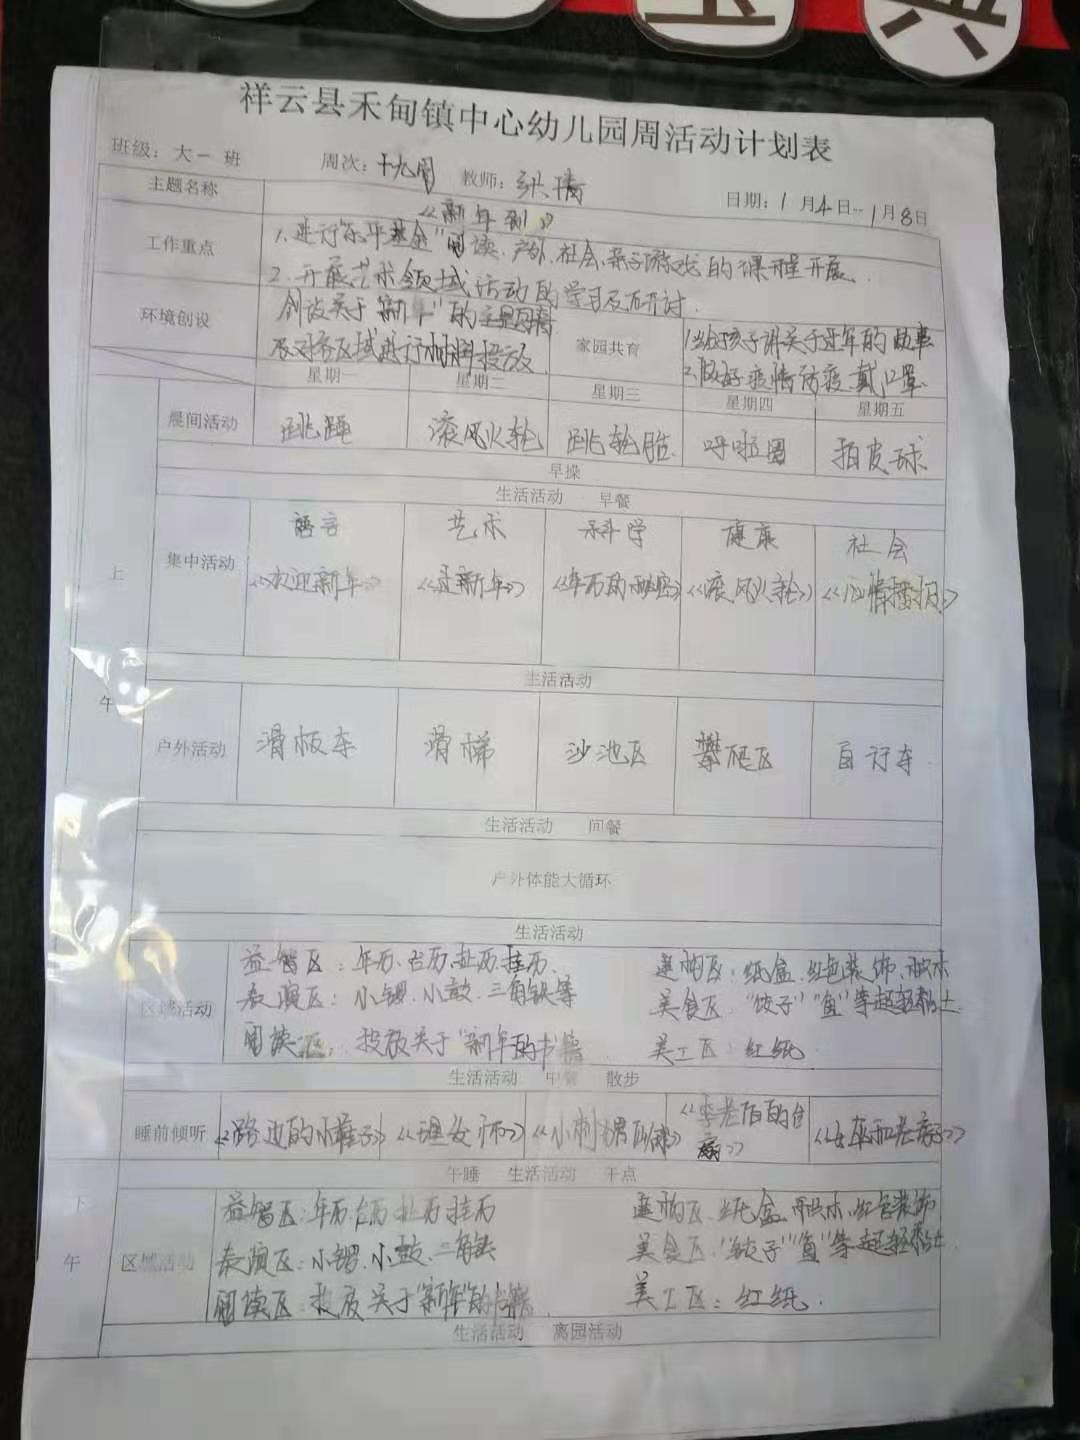 典
祥云县禾甸镇中心幼儿园周活动计划表
班级：大一 班 周次：十九周 教师： 日期：1 月4日--1月8日
主题名称 《新年到》
工作重点 1、进行乐平基金"阅读、户外、社会、亲子游戏的课程开展.
2、开展艺术领域活动的学习及研讨.
环境创设 创设关于"新年"的主题
及对各区域进行材料投放.
家园共育 1、给孩子讲关于过年的故事
2、做好疫情防疫、戴口罩.
星期一 星期二 星期三 星期四 星期五
上午
晨间活动 跳 滚风火轮 跳轮胎 呼啦圈 拍皮球
早操
生活活动 早餐
集中活动 语言 艺术 科学 健康 社会
《欢迎新年》 《过新年》 《年历的秘密》 《滚风火轮》 《心情播报》
生活活动
户外活动 滑板车 滑梯 沙池区 攀爬区 自行车
生活活动 间餐
户外体能大循环
生活活动
区域活动 益智区：年历、台历、挂历、 建构区：纸盒、红包装饰、积木
表演区：小锣、小鼓、三角铁等 美食区："饺子""鱼"等超轻黏土
阅读区：投放关于"新年的书籍 美工区：红纸.
生活活动 中餐 散步
睡前倾听 《路边的小 》 《理发师》 《小刺猬 》 《李老伯的 》 《 和老 》
午睡 生活活动 午点
下午
区域活动 益智区：年历、台历、挂历 建构区、纸盒、积木、红包装饰
表演区：小锣、小鼓、三角铁 美食区："饺子""鱼"等超轻黏土.
阅读区：投放关于"新年"的书籍 美工区：红纸.
生活活动 离园活动